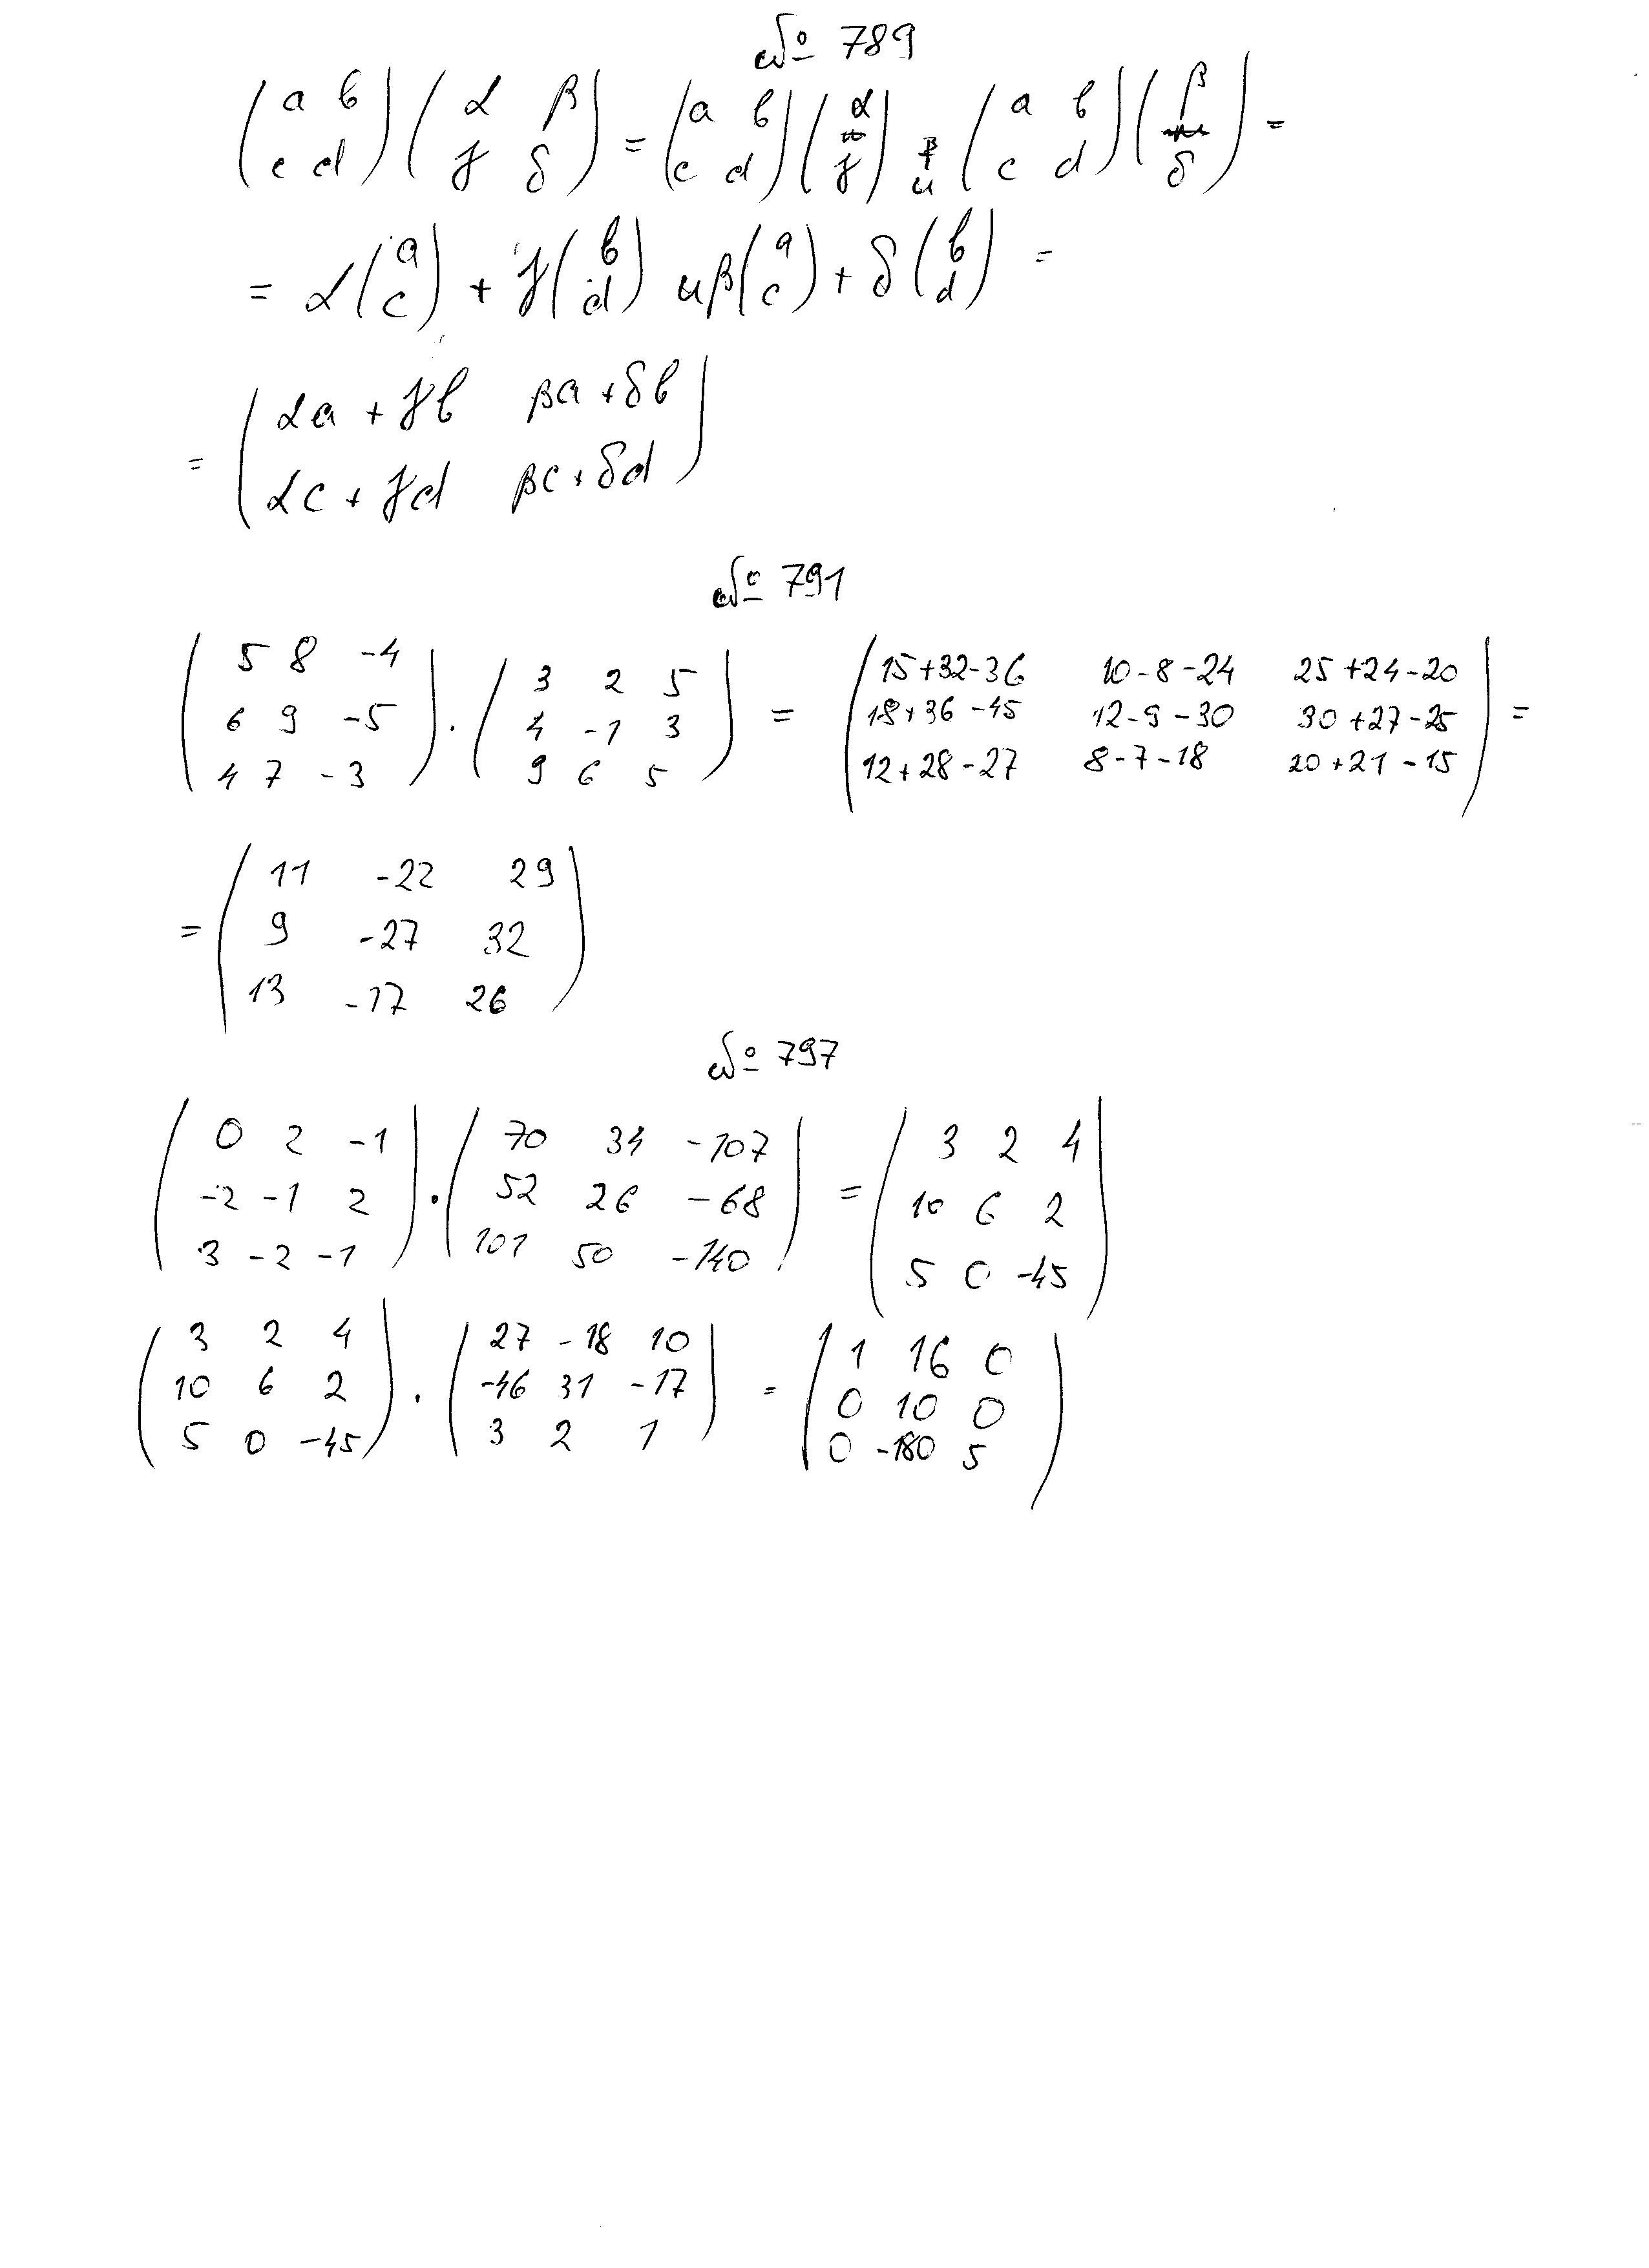 № 789
(a b; c d)(α β; γ δ) = (a b; c d)(α; γ) и (a b; c d)(β; δ) =
= α(a; c) + γ(b; d) и β(a; c) + δ(b; d) =
= (αa + γb βa + δb; αc + γd βc + δd)
№ 791
(5 8 -4; 6 9 -5; 4 7 -3) · (3 2 5; 4 -1 3; 9 6 5) = (15+32-36 10-8-24 25+24-20; 18+36-45 12-9-30 30+27-25; 12+28-27 8-7-18 20+21-15) =
= (11 -22 29; 9 -27 32; 13 -17 26)
№ 797
(0 2 -1; -2 -1 2; 3 -2 -1) · (70 34 -107; 52 26 -68; 101 50 -140) = (3 2 4; 10 6 2; 5 0 -45)
(3 2 4; 10 6 2; 5 0 -45) · (27 -18 10; -46 31 -17; 3 2 1) = (1 16 0; 0 10 0; 0 -180 5)